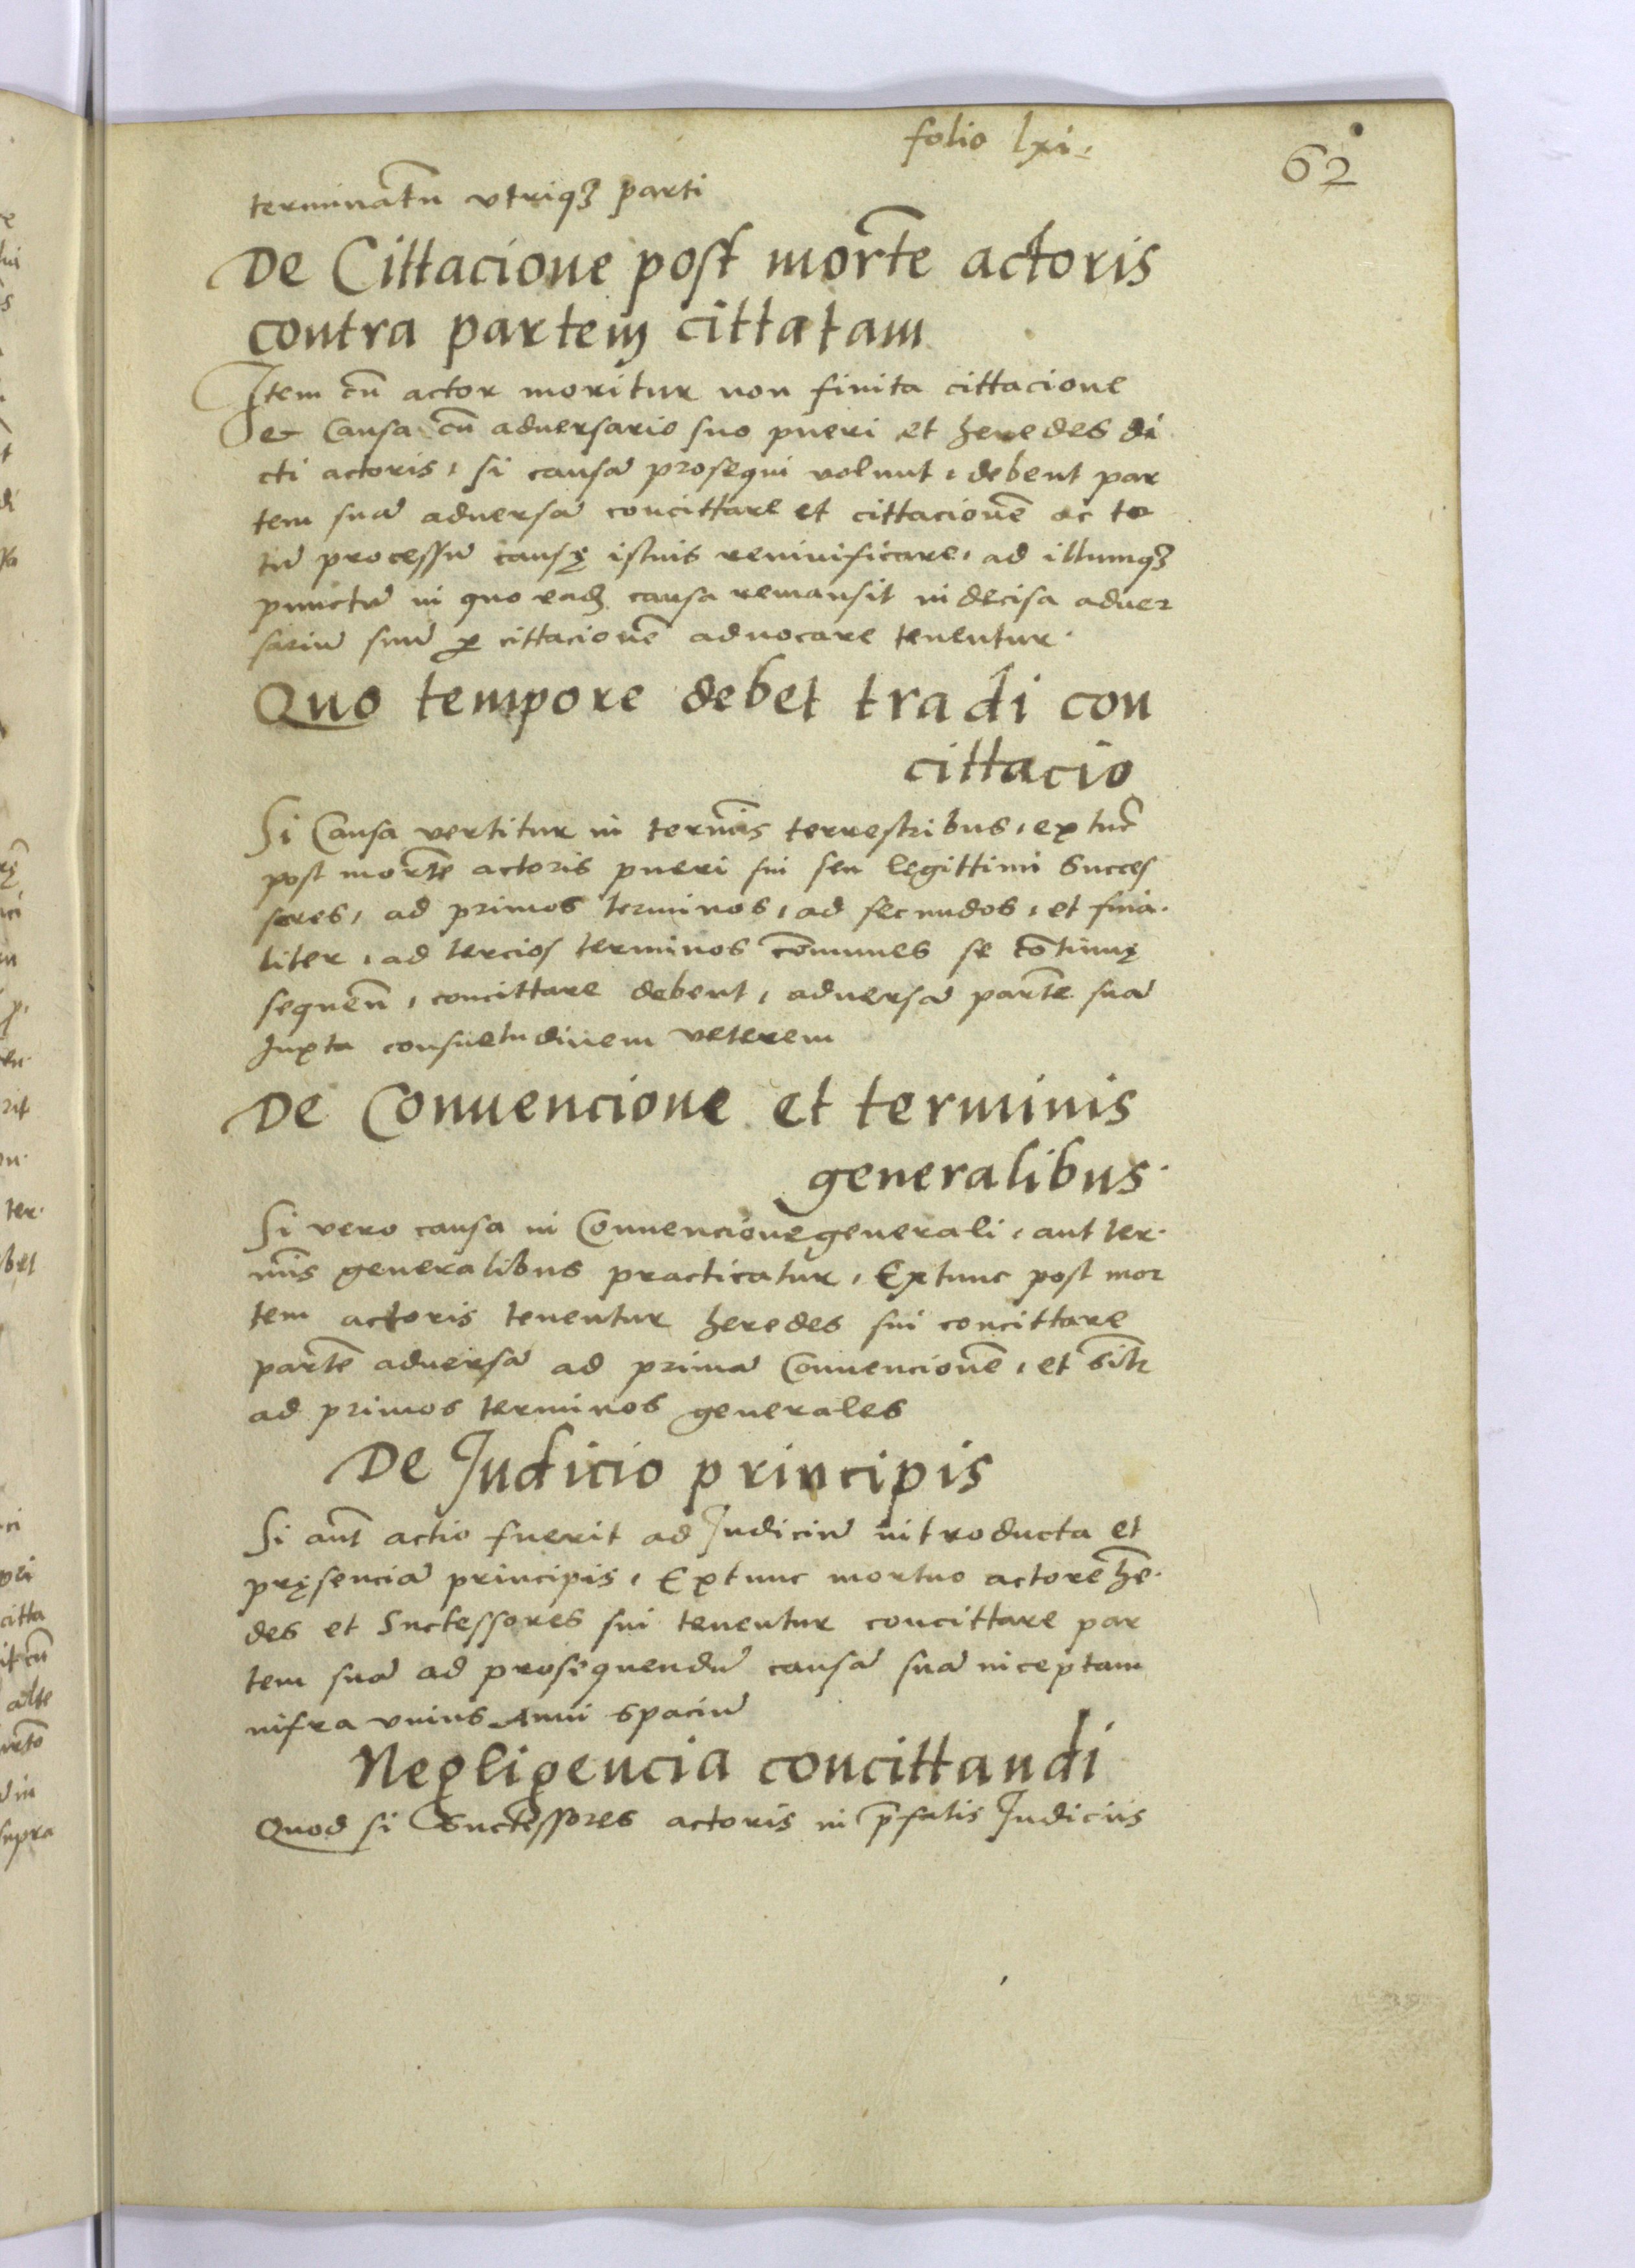 folio lxi.
62
terminatū vtriqꝫ parti
De Cittacione post mortē actoris
contra partem cittatam
Item cū actor moritur non finita cittacione
et Causa cū aduersario suo pueri et heredes di
cti actoris, si causā prosequi volunt, debent par
tem suā aduersā concittare et cittacionē ac to
tū processū causę istius reuiuificare, ad illumqꝫ
punctū in quo eadꝫ causa remansit indecisa aduer
sariū suū ꝑ cittacionē aduocare tenentur.
Quo tempore debet tradi con
cittacio
Si Causa vertitur in termīs terrestribus, extūc
post mortē actoris pueri sui seu legittimi Succes
sores, ad primos terminos, ad secundos, et fina.
liter, ad tercios terminos cōmunes se cōtinuę
sequeñ, concittare debent, aduersā partē suā
Iuxta consuetudinem veterem
De Conuencione et terminis
generalibus.
Si vero causa in Conuencione generali, aut ter.
mīs generalibus practicatur, Extunc post mor
tem actoris tenentur heredes sui concittare
partē aduersā ad primā Conuencionē, et Silr
ad primos terminos generales
De Iudicio principis
Si aūt actio fuerit ad Iudiciū introducta et
pręsenciā principis, Extunc mortuo actore hē.
des et Successores sui tenentur concittare par
tem suā ad prosequendū causā suā inceptam
infra vnius Anni spaciū
Negligencia concittandi
Quod si Successores actoris in p̄fatis Iudiciis